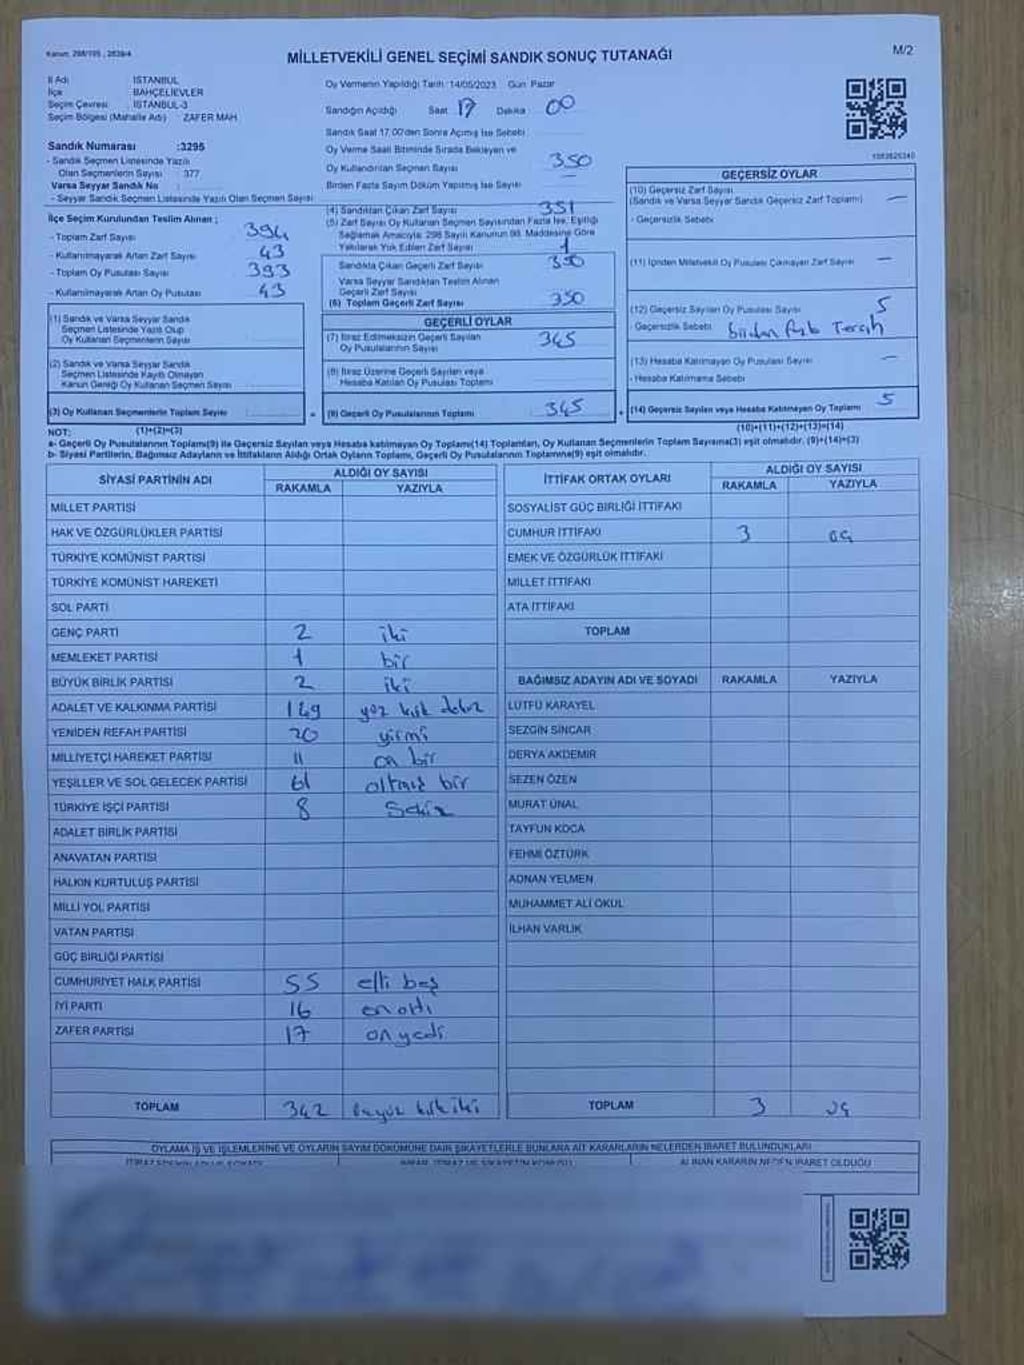 Kanun: 298/105, 2839/4
MİLLETVEKİLİ GENEL SEÇİMİ SANDIK SONUÇ TUTANAĞI
M/2
İl Adı : İSTANBUL
İlçe : BAHÇELİEVLER
Seçim Çevresi : İSTANBUL-3
Seçim Bölgesi (Mahalle Adı) : ZAFER MAH.
Sandık Numarası :3295
- Sandık Seçmen Listesinde Yazılı
Olan Seçmenlerin Sayısı : 377
Varsa Seyyar Sandık No :
- Seyyar Sandık Seçmen Listesinde Yazılı Olan Seçmen Sayısı
İlçe Seçim Kurulundan Teslim Alınan ;
- Toplam Zarf Sayısı 394
- Kullanılmayarak Artan Zarf Sayısı 43
- Toplam Oy Pusulası Sayısı 393
- Kullanılmayarak Artan Oy Pusulası 43
(1) Sandık ve Varsa Seyyar Sandık
Seçmen Listesinde Yazılı Olup
Oy Kullanan Seçmenlerin Sayısı
(2) Sandık ve Varsa Seyyar Sandık
Seçmen Listesinde Kayıtlı Olmayan
Kanun Gereği Oy Kullanan Seçmen Sayısı
(3) Oy Kullanan Seçmenlerin Toplam Sayısı
Oy Vermenin Yapıldığı Tarih : 14/05/2023 Gün: Pazar
Sandığın Açıldığı Saat 17 Dakika 00
Sandık Saat 17.00'den Sonra Açılmış İse Sebebi
Oy Verme Saati Bitiminde Sırada Bekleyen ve
Oy Kullandırılan Seçmen Sayısı 350
Birden Fazla Sayım Döküm Yapılmış İse Sayısı
(4) Sandıktan Çıkan Zarf Sayısı 351
(5) Zarf Sayısı Oy Kullanan Seçmen Sayısından Fazla İse, Eşitliği
Sağlamak Amacıyla 298 Sayılı Kanunun 98. Maddesine Göre
Yakılarak Yok Edilen Zarf Sayısı 1
Sandıkta Çıkan Geçerli Zarf Sayısı 350
Varsa Seyyar Sandıktan Teslim Alınan
Geçerli Zarf Sayısı
(6) Toplam Geçerli Zarf Sayısı 350
GEÇERLİ OYLAR
(7) İtiraz Edilmeksizin Geçerli Sayılan
Oy Pusulalarının Sayısı 345
(8) İtiraz Üzerine Geçerli Sayılan veya
Hesaba Katılan Oy Pusulası Toplamı
= (9) Geçerli Oy Pusulalarının Toplamı 345
GEÇERSİZ OYLAR
(10) Geçersiz Zarf Sayısı
(Sandık ve Varsa Seyyar Sandık Geçersiz Zarf Toplamı) —
- Geçersizlik Sebebi
(11) İçinden Milletvekili Oy Pusulası Çıkmayan Zarf Sayısı —
(12) Geçersiz Sayılan Oy Pusulası Sayısı 5
- Geçersizlik Sebebi birden fazla Tercih
(13) Hesaba Katılmayan Oy Pusulası Sayısı —
- Hesaba Katılmama Sebebi
+ (14) Geçersiz Sayılan veya Hesaba Katılmayan Oy Toplamı 5
NOT: (1)+(2)=(3) (10)+(11)+(12)+(13)=(14)
a- Geçerli Oy Pusulalarının Toplamı(9) ile Geçersiz Sayılan veya Hesaba katılmayan Oy Toplamı(14) Toplamları, Oy Kullanan Seçmenlerin Toplam Sayısına(3) eşit olmalıdır. (9)+(14)=(3)
b- Siyasi Partilerin, Bağımsız Adayların ve İttifakların Aldığı Ortak Oyların Toplamı, Geçerli Oy Pusulalarının Toplamına(9) eşit olmalıdır.
SİYASİ PARTİNİN ADI ALDIĞI OY SAYISI
RAKAMLA YAZIYLA
MİLLET PARTİSİ
HAK VE ÖZGÜRLÜKLER PARTİSİ
TÜRKİYE KOMÜNİST PARTİSİ
TÜRKİYE KOMÜNİST HAREKETİ
SOL PARTİ
GENÇ PARTİ 2 iki
MEMLEKET PARTİSİ 1 bir
BÜYÜK BİRLİK PARTİSİ 2 iki
ADALET VE KALKINMA PARTİSİ 149 yüz kırk dokuz
YENİDEN REFAH PARTİSİ 20 yirmi
MİLLİYETÇİ HAREKET PARTİSİ 11 on bir
YEŞİLLER VE SOL GELECEK PARTİSİ 61 altmış bir
TÜRKİYE İŞÇİ PARTİSİ 8 Sekiz
ADALET BİRLİK PARTİSİ
ANAVATAN PARTİSİ
HALKIN KURTULUŞ PARTİSİ
MİLLİ YOL PARTİSİ
VATAN PARTİSİ
GÜÇ BİRLİĞİ PARTİSİ
CUMHURİYET HALK PARTİSİ 55 elli beş
İYİ PARTİ 16 on altı
ZAFER PARTİSİ 17 on yedi
TOPLAM 342 kırk iki
İTTİFAK ORTAK OYLARI ALDIĞI OY SAYISI
RAKAMLA YAZIYLA
SOSYALİST GÜÇ BİRLİĞİ İTTİFAKI
CUMHUR İTTİFAKI 3 üç
EMEK VE ÖZGÜRLÜK İTTİFAKI
MİLLET İTTİFAKI
ATA İTTİFAKI
TOPLAM
BAĞIMSIZ ADAYIN ADI VE SOYADI RAKAMLA YAZIYLA
LÜTFÜ KARAYEL
SEZGİN SİNCAR
DERYA AKDEMİR
SEZEN ÖZEN
MURAT ÜNAL
TAYFUN KOCA
FEHMİ ÖZTÜRK
ADNAN YELMEN
MUHAMMET ALİ OKUL
İLHAN VARLIK
TOPLAM 3 üç
OYLAMA İŞ VE İŞLEMLERİNE VE OYLARIN SAYIM DÖKÜMÜNE DAİR ŞİKAYETLERLE BUNLARA AİT KARARLARIN NELERDEN İBARET BULUNDUKLARI
ALINAN KARARIN NEDEN İBARET OLDUĞU